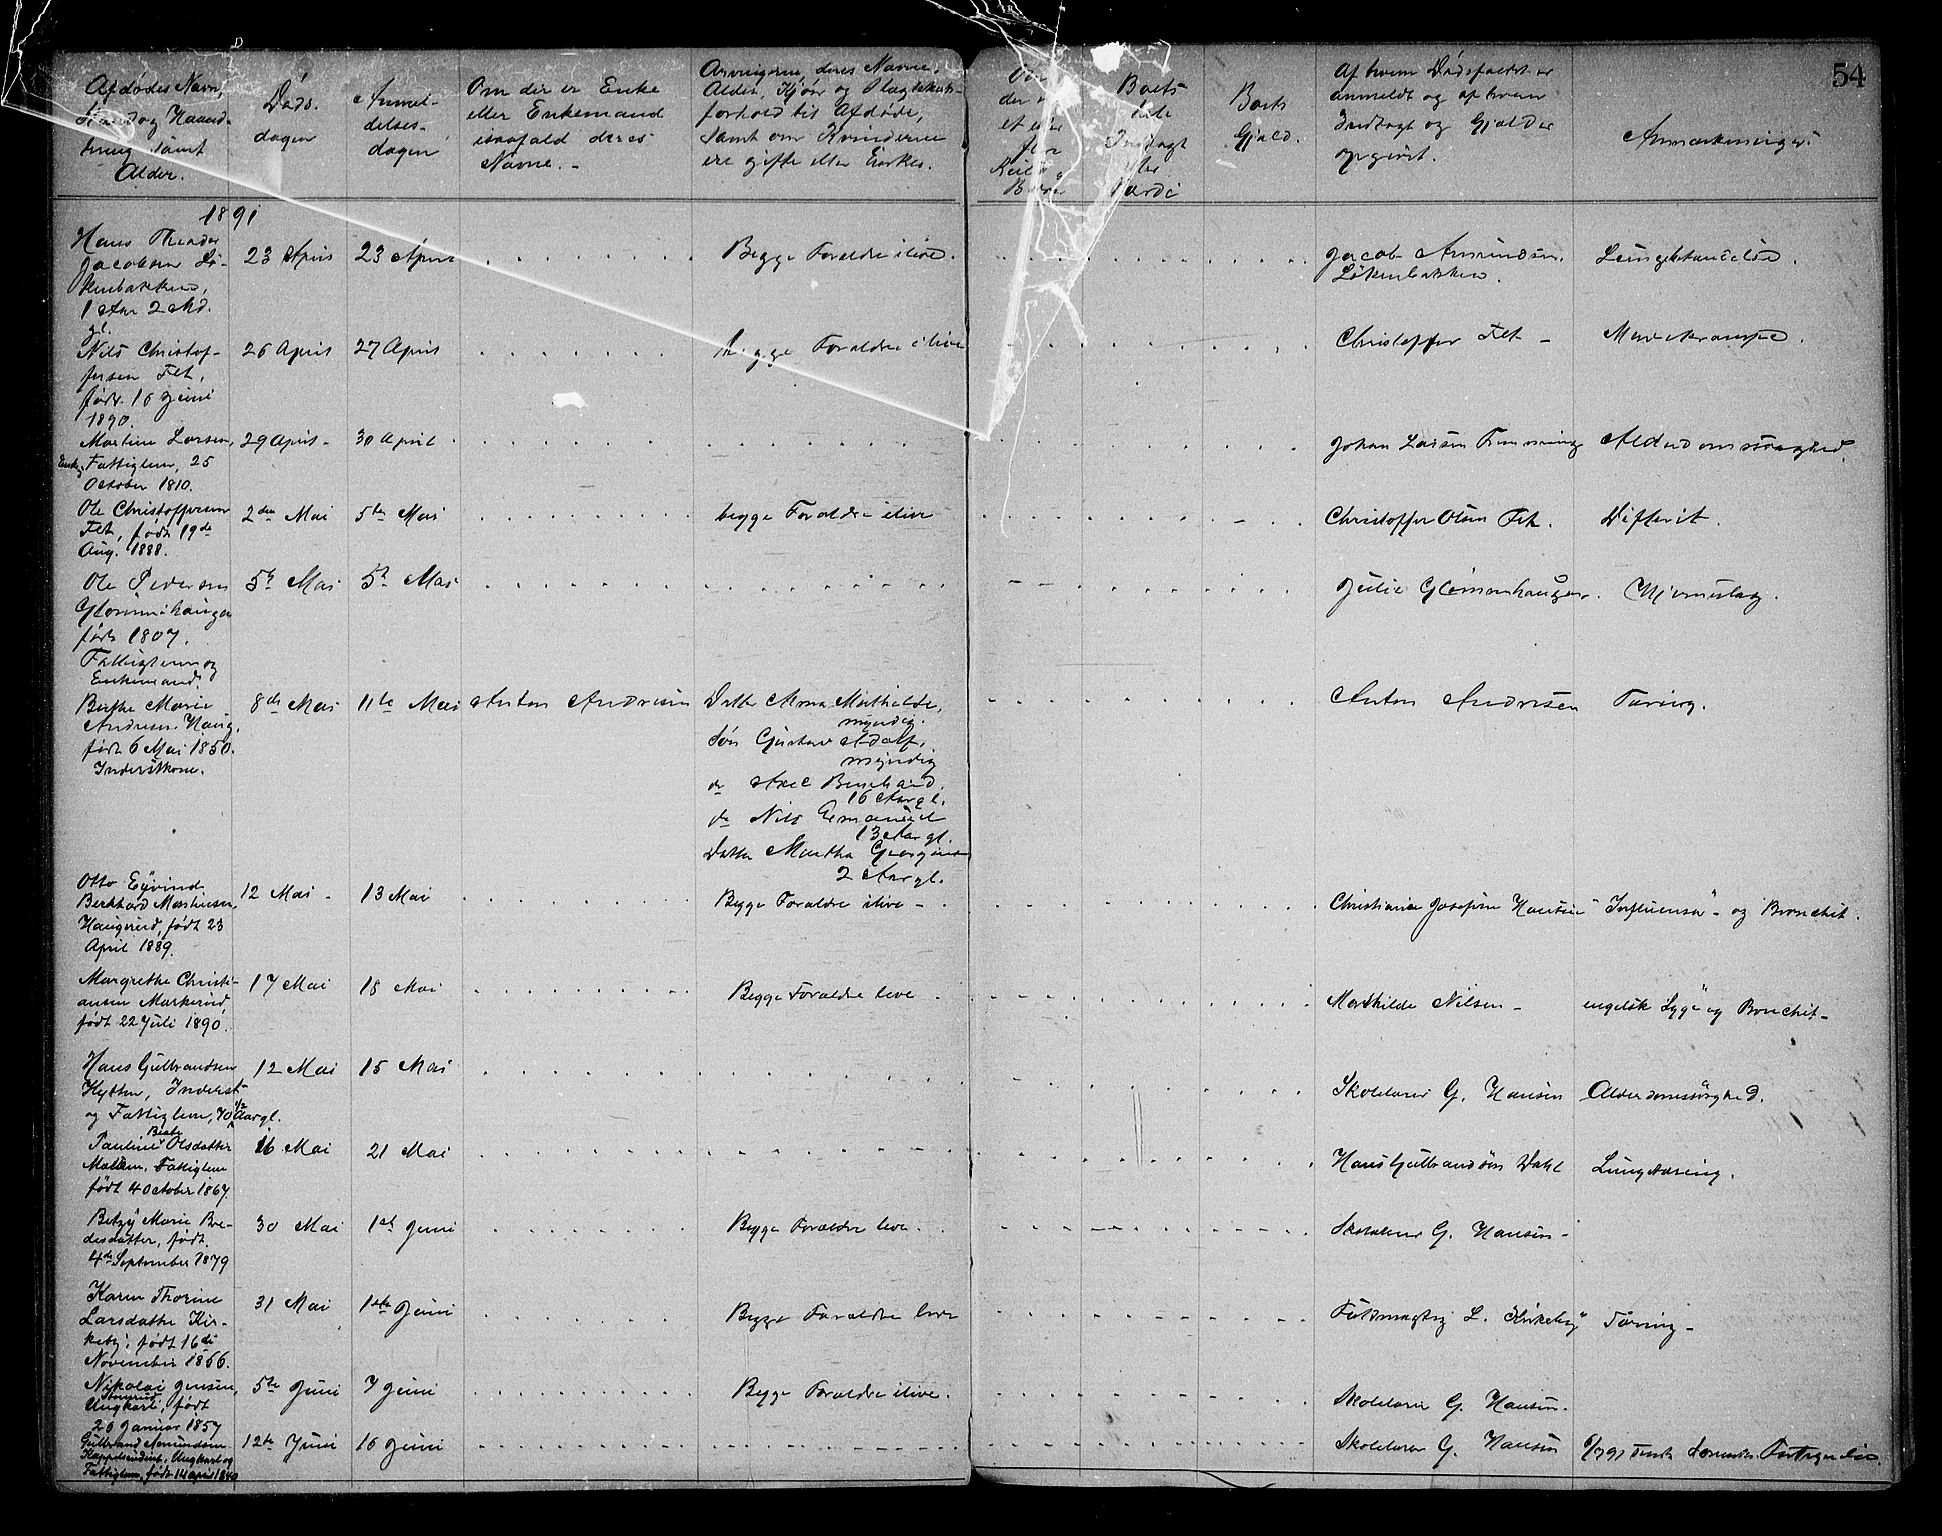 54
Afdødes Navn,
Stand og Haand-
tering samt
Alder.
Døds-
dagen
Anmel-
delses-
dagen
Om der er Enke
eller Enkemand
isaafald deres
Navne. -
Arvingerne, deres Navne,
Alder, Kjøn og Slægtskabs-
forhold til Afdøde,
samt om Kvinderne
ere gifte eller Enker.
Om
der er
et eller
flere
Boets
Indtægt
eller
Værdi
Boets
Gjæld.
Af hvem Dødsfaldet er
anmeldt og af hvem
Indtægt og Gjæld er
opgivet.
Anmærkninger.
1891
Hans Theodor
Jacobsen Lø-
kenbakken,
1 Aar 2 Md.
gl.
23 April
23 April
Begge Forældre ilive.
Jacob Amundsen
Løkenbakken.
Nils Christof-
fersen Fet,
født 16 Juni
1890.
26 April
27 April
Begge Forældre ilive
Christoffer Fet -
Mavekrampe.
Martine Larsen,
Enke, Fattiglem, 25
October 1810.
29 April -
30 April
Johan Larsen
Alderdomssvaghed.
Ole Christoffersen
Fet, født 19de
Aug. 1888.
2den Mai
5te Mai
begge Forældre ilive
Christoffer Olsen Fet.
Difterit.
Ole Pedersen
Glommihaugen
født 1807.
Fattiglem og
Enkemand
5te Mai
5te Mai
Julie Glommenhaugen.
Hjerneslag.
Berthe Marie
Andresen Haug,
født 6 Mai 1850.
Inderstkone.
8de Mai
11te Mai
Anton Andresen
Datter Anna Mathilde,
myndig.
Søn Gustav Adolf,
myndig
do Axel Bernhard,
16 Aar gl.
do Nils Emanuel
13 Aar gl.
Datter Martha Georgine
2 Aar gl.
Anton Andresen
Tæring.
Otto Eyvind
Berhhard Mathisen,
Haugerud, født 23
April 1889.
12 Mai -
13 Mai
Begge Forældre ilive -
Christiane Josefine Hansen
"Influensa" - og Bronchit.
Margrethe Christi-
ansen Markerud
født 22 Juli 1890.
17 Mai
18 Mai
Begge Forældre leve
Mathilde Nilsen -
"engelsk Syge" og Bronchit -
Hans Gulbrandsen
Hytten, Inderst
og Fattiglem, 70 1/2 Aar gl.
12 Mai
15 Mai
Skolelærer G. Hansen
Alderdomssvaghed.
Beate
Pauline Olsdatter
Moteen, Fattiglem
født 4 October 1867.
16 Mai
21 Mai
Hans Gulbrandsøn Dahl
Lungetæring.
Betzy Marie Bre-
desdatter, født
4de September 1879
30 Mai
1ste Juni
Begge Forældre leve.
Skolelærer G. Hansen -
Karen Thorine
Larsdatter Kir-
keby, født 16de
November 1866.
31 Mai
1ste Juni
Begge Forældre leve
Fuldmægtig L. Kirkeby
Tæring -
Nikolai Jensen,
Ungkarl, født
26 Januar 1857
5te Juni
7 Juni
Begge Forældre ilive.
Skolelærer G. Hansen -
Gulbrand Amundsen
Kappelsrudeiet, Ungkarl og
Fattiglem, født 14 April 1840
12te Juni
16 Juni
Skolelærer G. Hansen